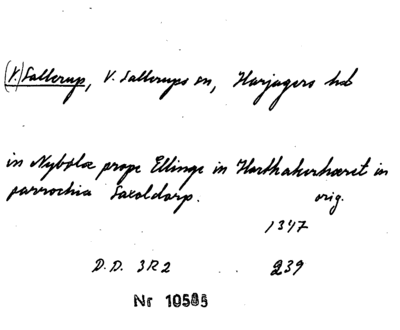 (V.) Sallerup, V. Sallerups sn, Harjagers hd
in Nybølæ prope Ellinge in Harthakerhæret in
parrochia Saxoldarp. orig.
1347
D.D. 3R2 239
Nr 10585